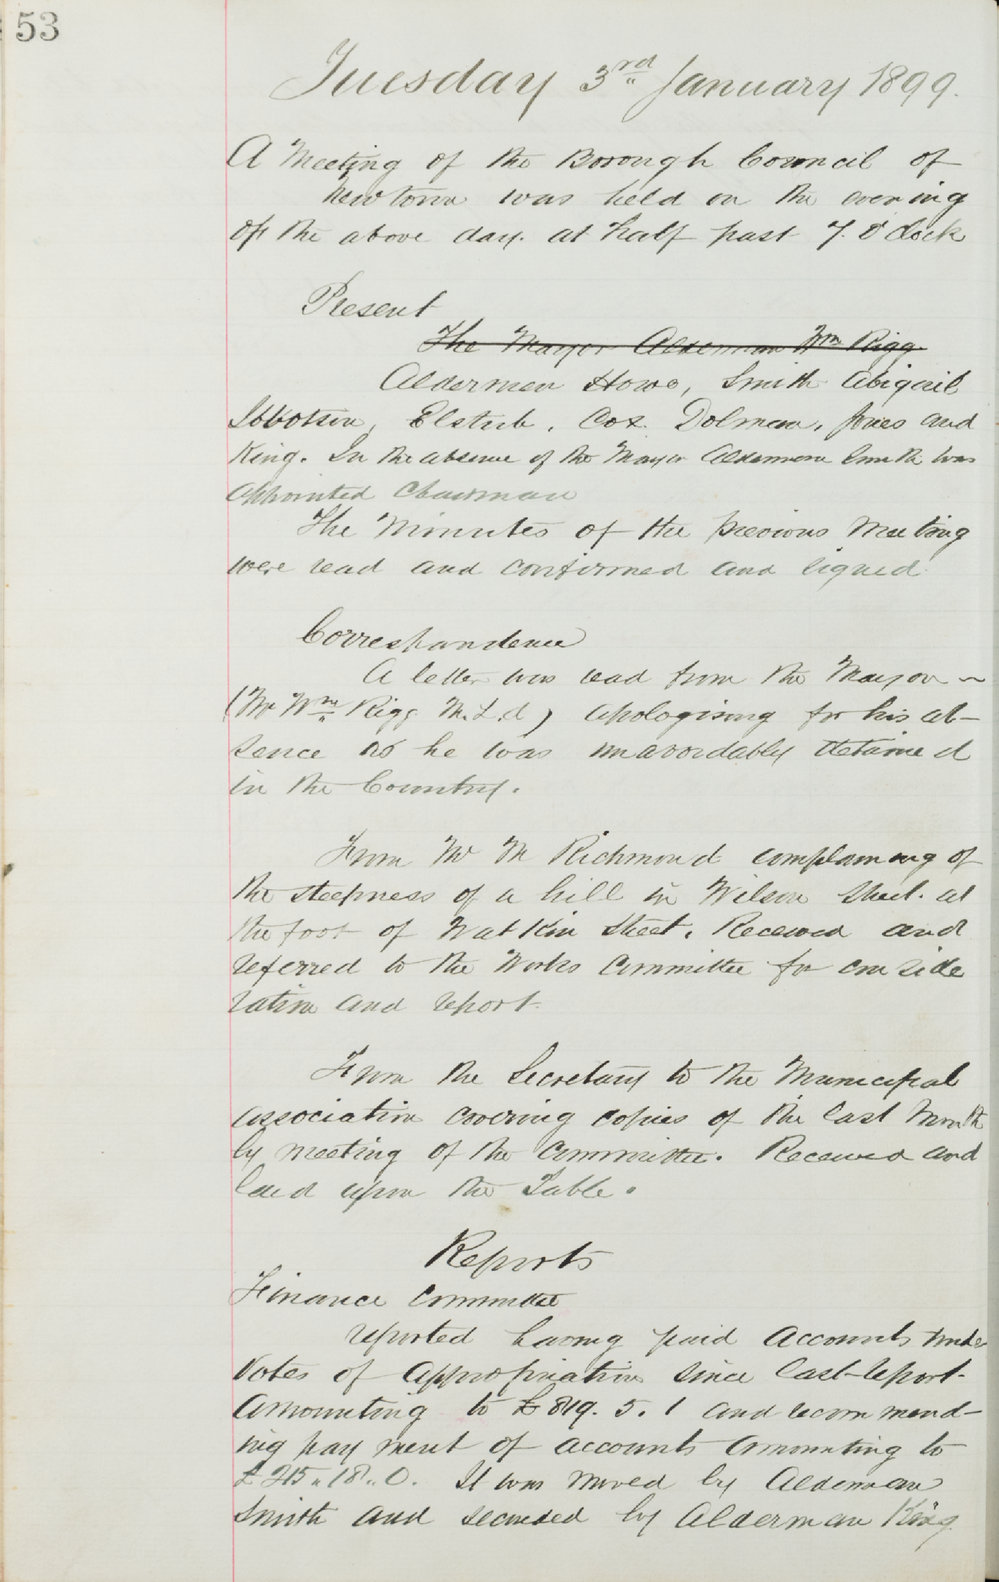 53
Tuesday 3rd January 1899.
A Meeting of the Borough Council of
Newtown was held on the evening
of the above day. at half past 7. O'clock
Present
The Mayor Alderman Wm Rigg
Aldermen Howe, Smith Abigail
Ibbotson, Elstub, Cox. Dolman, Jones and
King. In the absence of the Mayor Alderman Smith was
appointed Chairman
The Minutes of the previous Meeting
were read and confirmed and signed
Correspondence
A letter was read from the Mayor
(Mr Wm Rigg M.L.A) apologising for his ab-
sence as he was unavoidably detained
in the Country.
From Mr M Richmond complaining of
the steepness of a hill in Wilson Street. at
the foot of Watkin Street. Received and
referred to the Works Committee for conside
ration and report.
From the Secretary to the Municipal
association covering copies of the last Month
ly meeting of the Committee. Received and
laid upon the Table.
Reports
Finance Committee
reported having paid accounts under
Votes of Appropriation since last report.
Amounting to £819. 5. 1 and recommend-
ing payment of accounts amounting to
£215.. 18.. 0. It was moved by Alderman
Smith and seconded by Alderman King